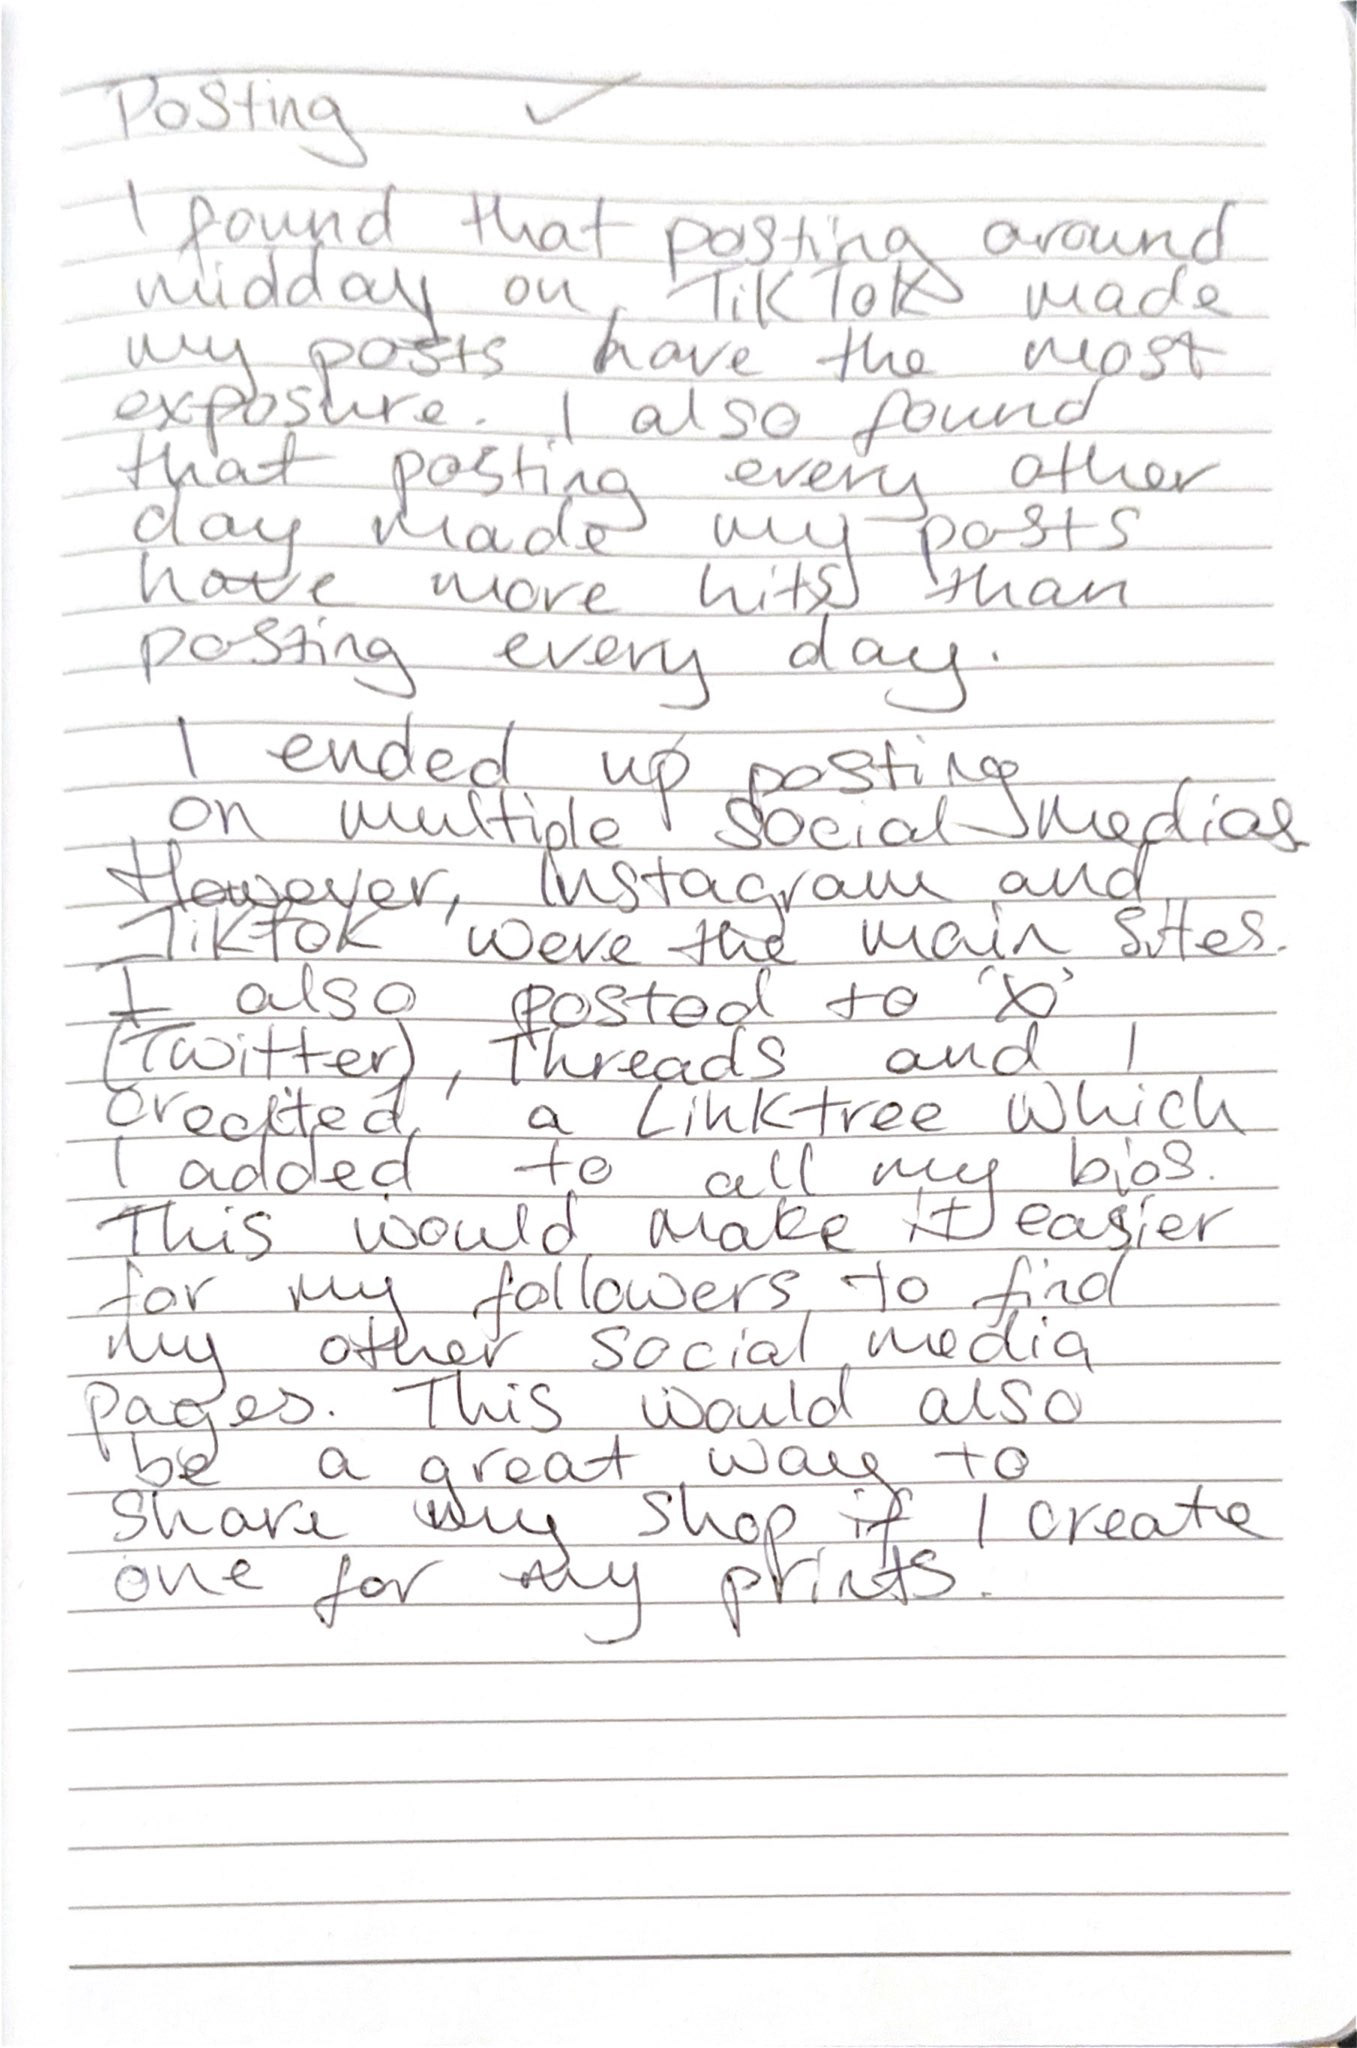 Posting ✓
I found that posting around
midday on TikTok made
my posts have the most
exposure. I also found
that posting every other
day made my posts
have more hits than
posting every day.
I ended up posting
on multiple social medias
However, Instagram and
TikTok were the main sites.
I also posted to 'X'
(Twitter), Threads and I
created a Linktree which
I added to all my bios.
This would make it easier
for my followers to find
my other social media
pages. This would also
be a great way to
share my shop if I create
one for my prints.